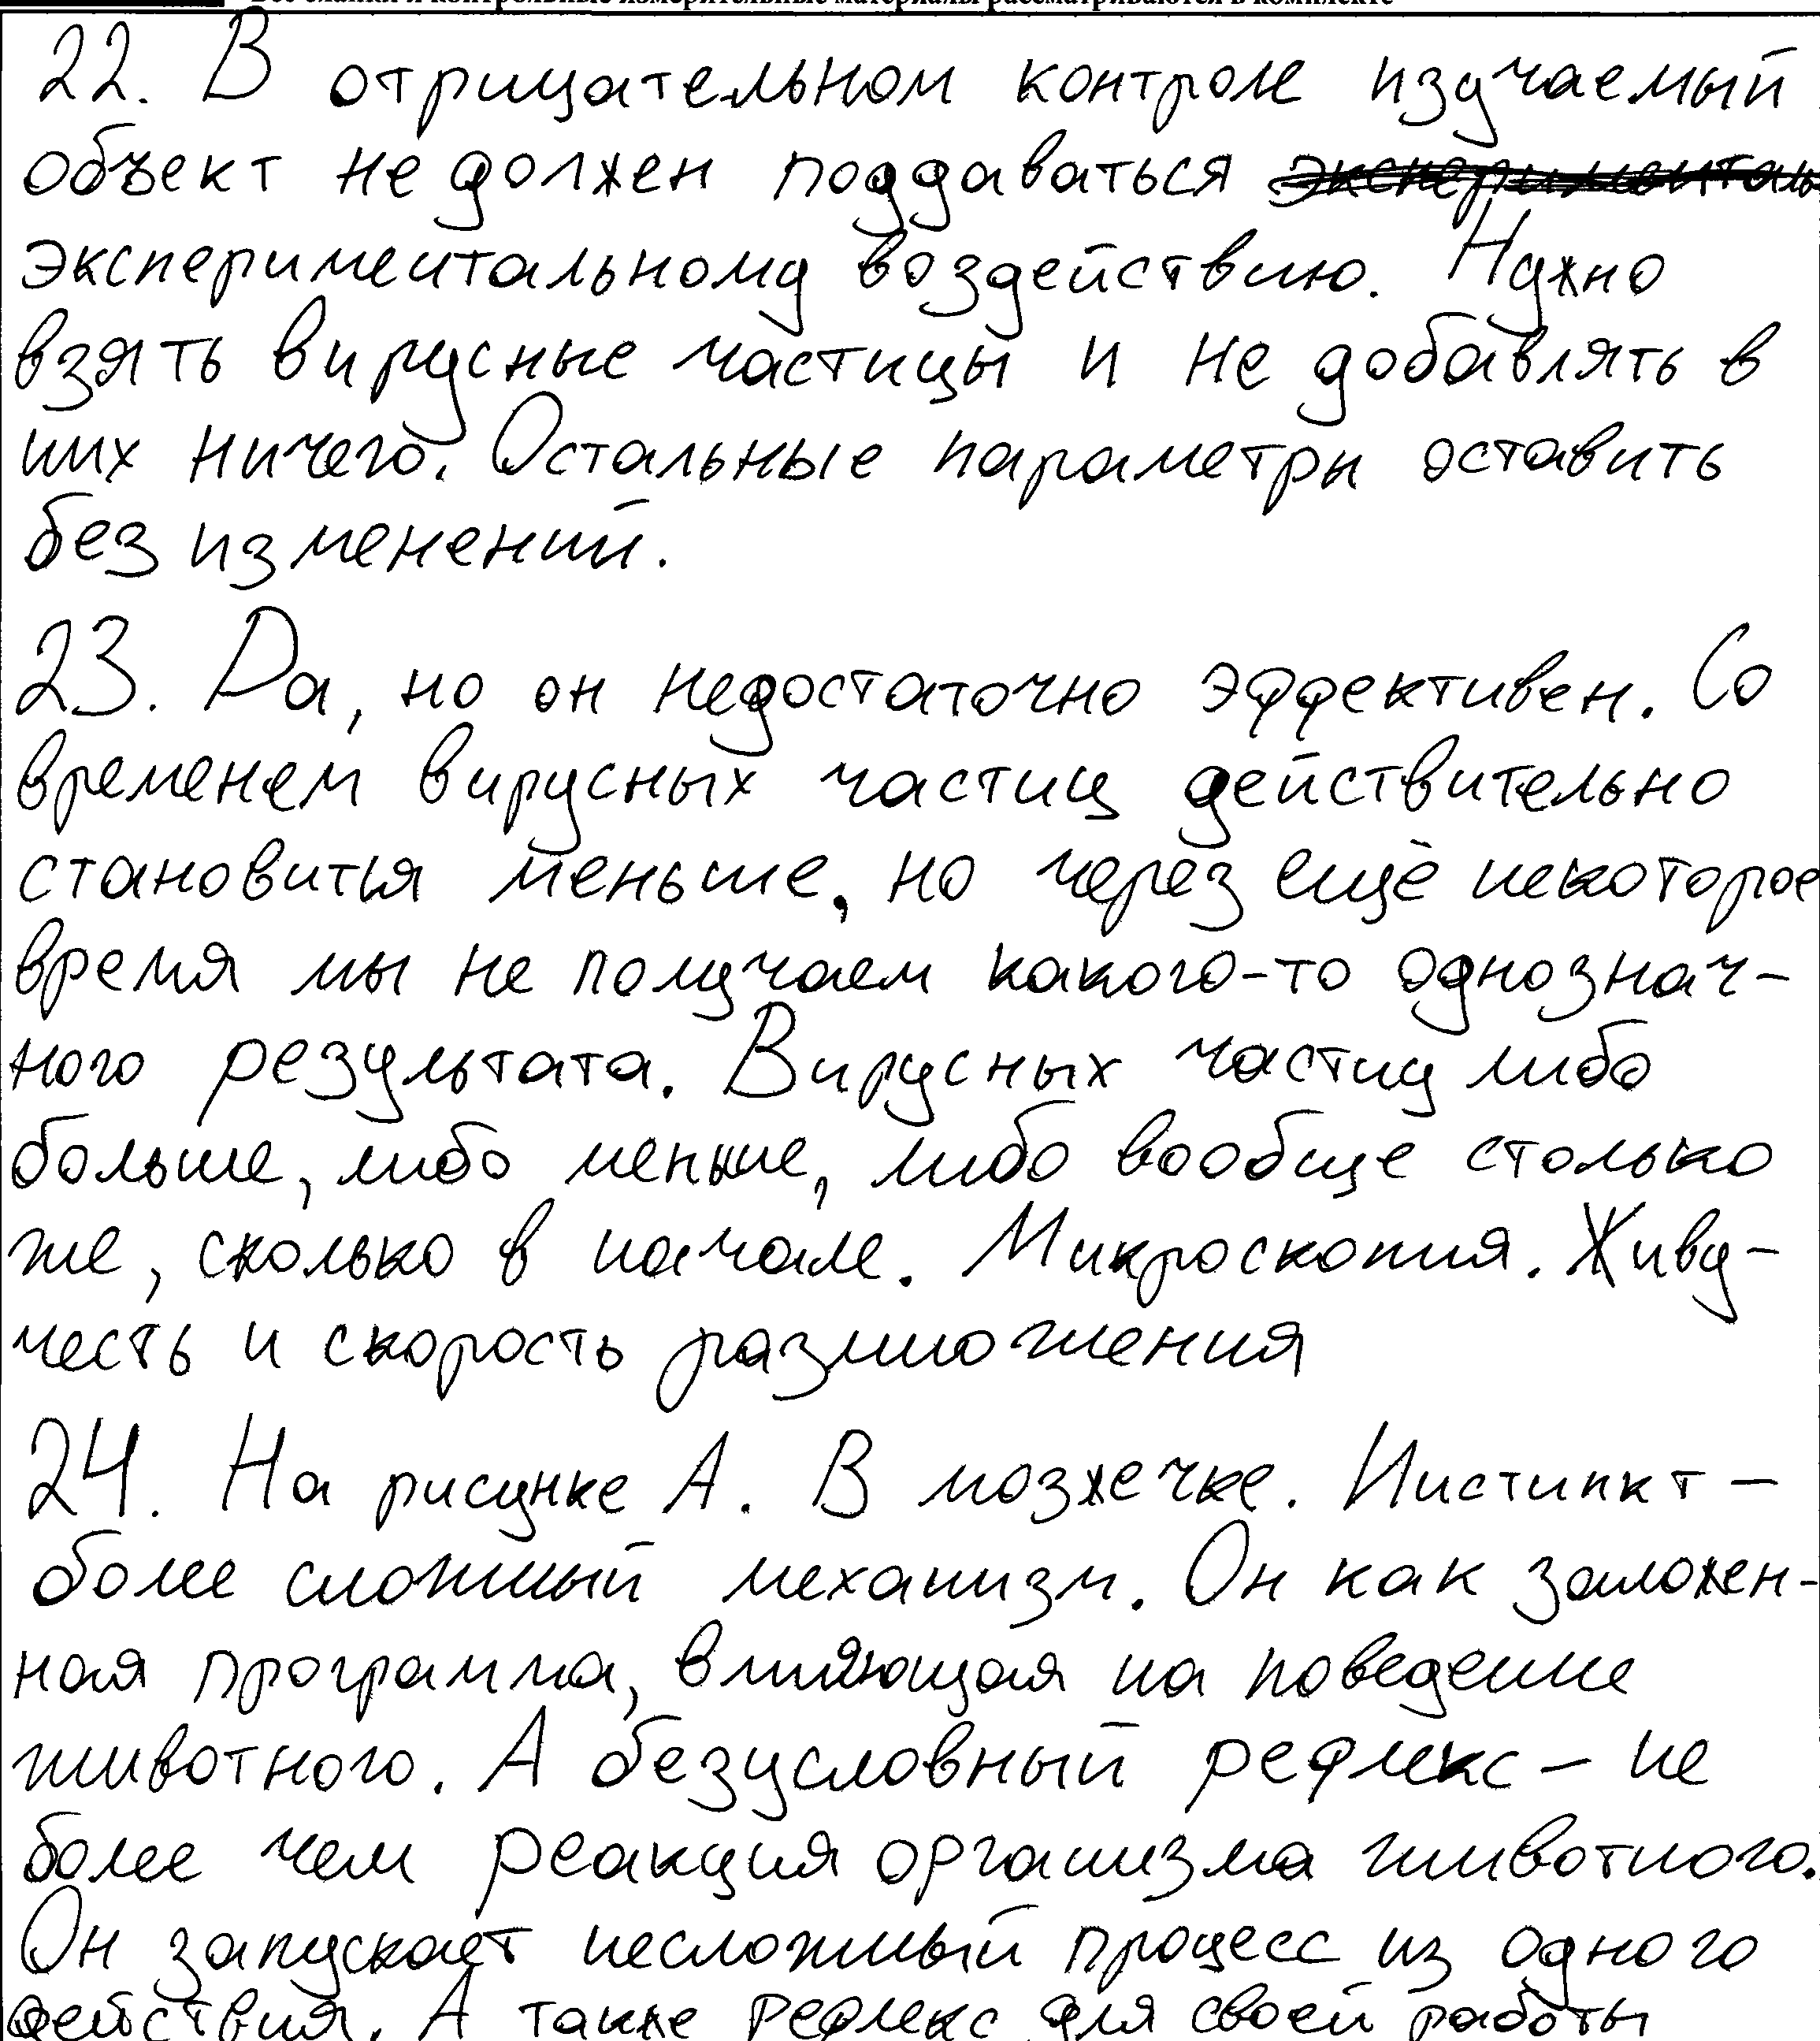 Все бланки и контрольные измерительные материалы рассматриваются в комплекте
22. В отрицательном контроле изучаемый
объект не должен поддаваться эксперименталь
экспериментальному воздействию. Нужно
взять вирусные частицы и не добавлять в
них ничего. Остальные параметры оставить
без изменений.
23. Да, но он недостаточно эффективен. Со
временем вирусных частиц действительно
становиться меньше, но через ещё некоторое
время мы не получаем какого-то однознач-
ного результата. Вирусных частиц либо
больше, либо меньше, либо вообще столько
же, сколько в начале. Микроскопия. Живу-
честь и скорость размножения
24. На рисунке А. В мозжечке. Инстинкт -
более сложный механизм. Он как заложен-
ная программа, влияющая на поведение
животного. А безусловный рефлекс - не
более чем реакция организма животного.
Он запускает несложный процесс из одного
действия. А также рефлекс для своей работы